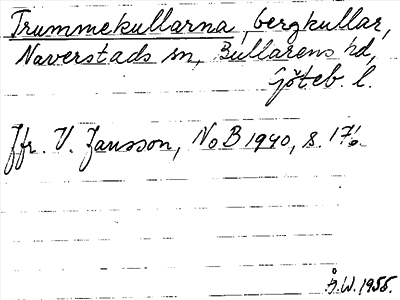 Trummekullarna, bergkullar,
Naverstads sn, Bullarens hd,
Göteb. l.
Jfr. V. Jansson, NoB 1940, s. 176.
Å.W. 1955.